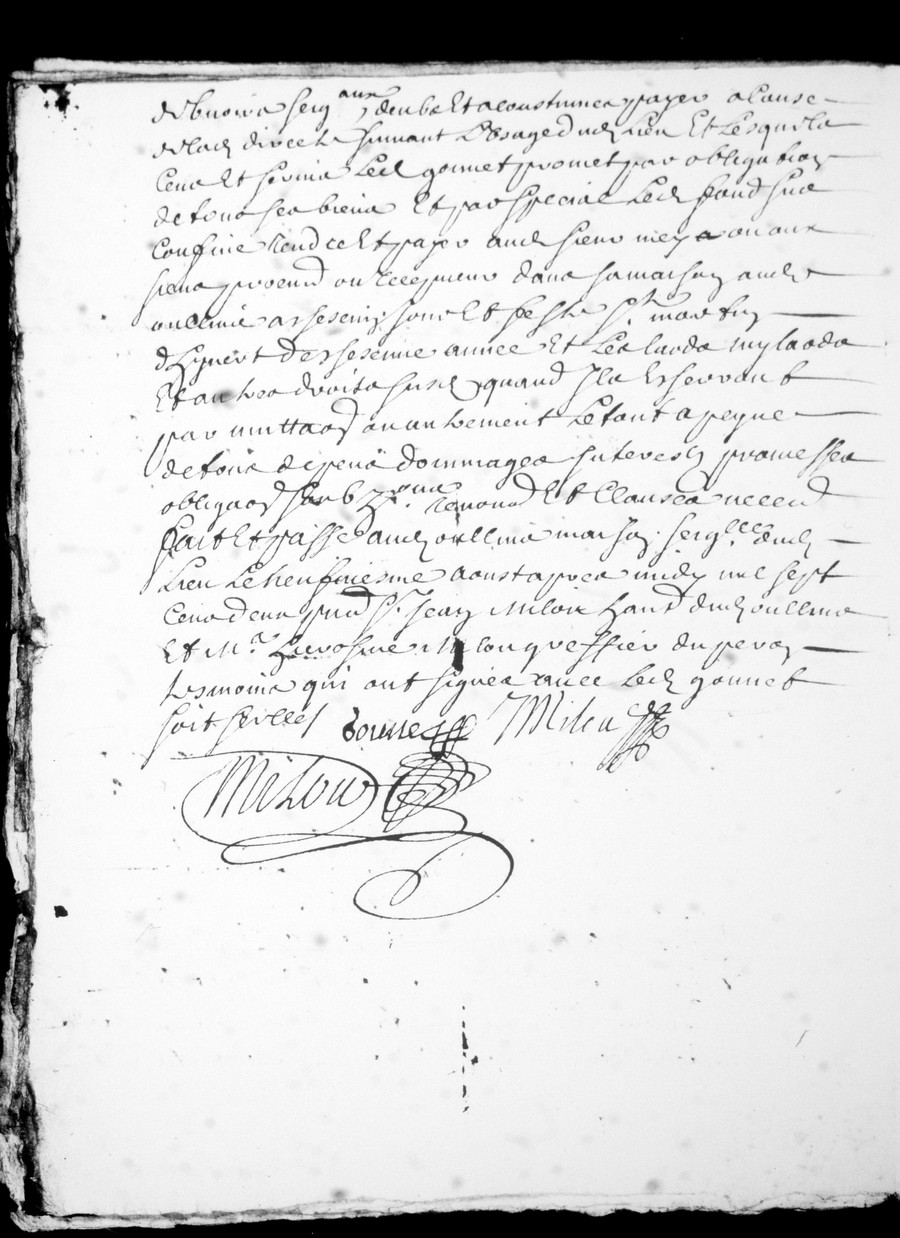 debvoirs seig.aux deubz et acoustumes payer a cause
de lad directe suivant l'usage dud lieu et lesquels
cens et servis led gonnet promet par obligation
de tous ses biens et par special led fond sus
confine rendre et payer aud sieur ou aux
siens procend ou recepveur dans sa maison aud
oullins a chescun jour et feste St martin
d'hyvert chescune annee et les laods mylaods
et autres droits susd quand ils escherront
par muttaon ou autrement le tout a peyne
de tous despens dommages interests promesses
obligaons renonc et clauses necend
fait et passe aud oullins maison seig.lle dud
lieu le neufviesme aoust apres midy mil sept
cens deux pnd Sr Jean Milon dud oullins
et Mr Hierosme Milon greffier du peron
tesmoins qui ont signes avec led gonnet
soit scelles Milon
Milon